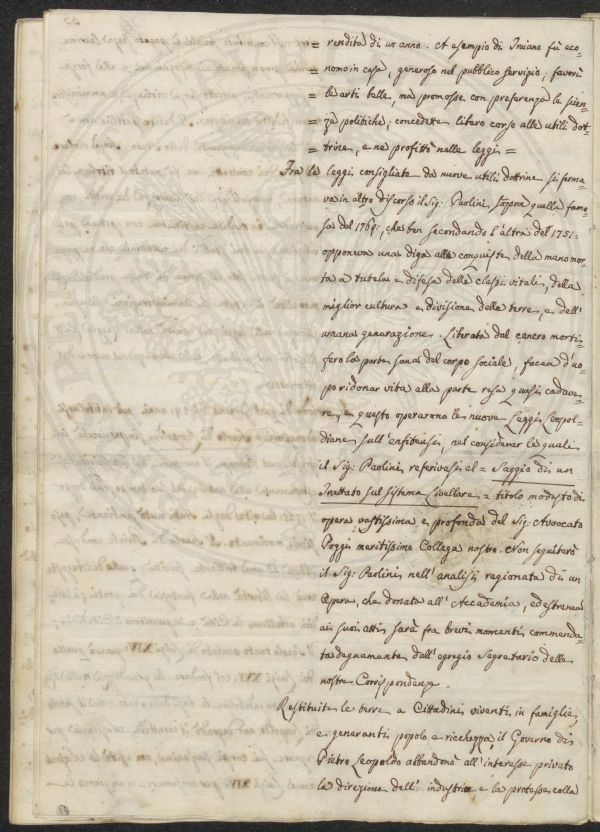 = rendita di un anno. A esempio di Traiano fù eco-
= nomo in casa, generoso nel pubblico servizio; favorì
= le arti belle, mà promosse con preferenza le scien-
= ze politiche, concedette libero corso alle utili dot-
= trine, e ne profittò nelle leggi =
Tra le leggi consigliate da nuove utili dottrine si ferma-
va in altro discorso il Sig: Paolini, sopra quella famo-
sa del 1769; che ben secondando l'altra del 1751.
opponeva una diga alle conquiste della manomor-
ta a tutela e difesa delle classi vitali, della
miglior cultura e divisione delle terre, e dell'
umana generazione. Liberata dal cancro morti-
fero la parte sana del corpo sociale, facea d'uo-
po ridonar vita alla parte resa quasi cadave-
re, e questo operarono le nuove Leggi Leopol-
diane sull'enfiteusi, nel considerar le quali
il Sig: Paolini referivasi al = Saggio di un
Trattato sul sistema Livellare = titolo modesto di
opera vastissima e profonda del Sig: Avvocato
Poggi meritissimo Collega nostro. Non seguiterò
il Sig: Paolini nell'analisi ragionata di un
Opera, che donata all'Accademia, ed estranea
ai suoi atti sarà fra brevi momenti commenda-
ta degnamente dall'egregio Segretario delle
nostre Corrispondenze.
Restituite le terre a Cittadini viventi in famiglie,
e generanti popolo e ricchezza, il Governo di
Pietro Leopoldo abbandonò all'interesse privato
la direzione dell'industria, e la protesse colla